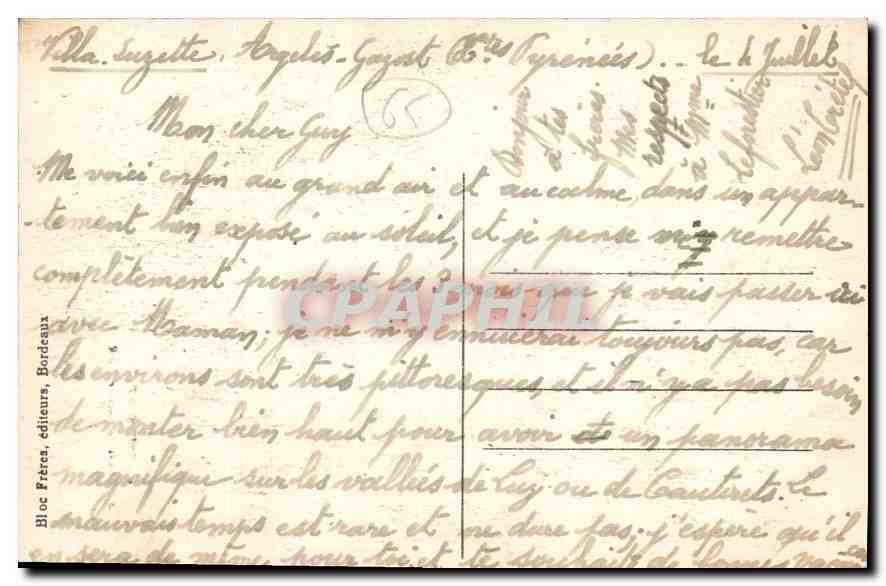 Villa Suzette, Argelès-Gazost (Htes Pyrénées).. le 4 Juillet
65
Mon cher Guy
Me voici enfin au grand air et au calme, dans un appar-
-tement bien exposé au soleil, et je pense m'y remettre
complètement pendant les 3 mois que je vais passer ici
avec Maman; je ne m'y ennuierai toujours pas, car
les environs sont très pittoresques, et il n'y a pas besoin
de monter bien haut pour avoir un panorama
magnifique sur les vallées de Luz ou de Cauterets. Le
mauvais temps est rare et ne dure pas; j'espère qu'il
en sera de même pour toi et te souhaite de bonnes vacances
Bonjour
à tes
frères.
Mes
respects
à Mme
Leforestier
Bloc Frères, éditeurs, Bordeaux
CPAPHIL